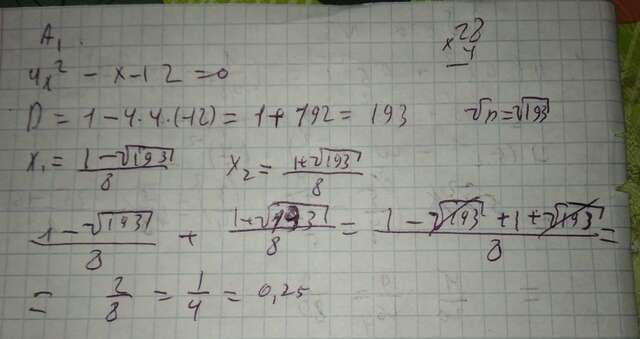 A₁.
28
× 4
4x² - x - 12 = 0
D = 1 - 4·4·(-12) = 1 + 192 = 193 √D = √193
x₁ = (1 - √193)/8 x₂ = (1 + √193)/8
(1 - √193)/8 + (1 + √193)/8 = (1 - √193 + 1 + √193)/8 =
= 2/8 = 1/4 = 0,25